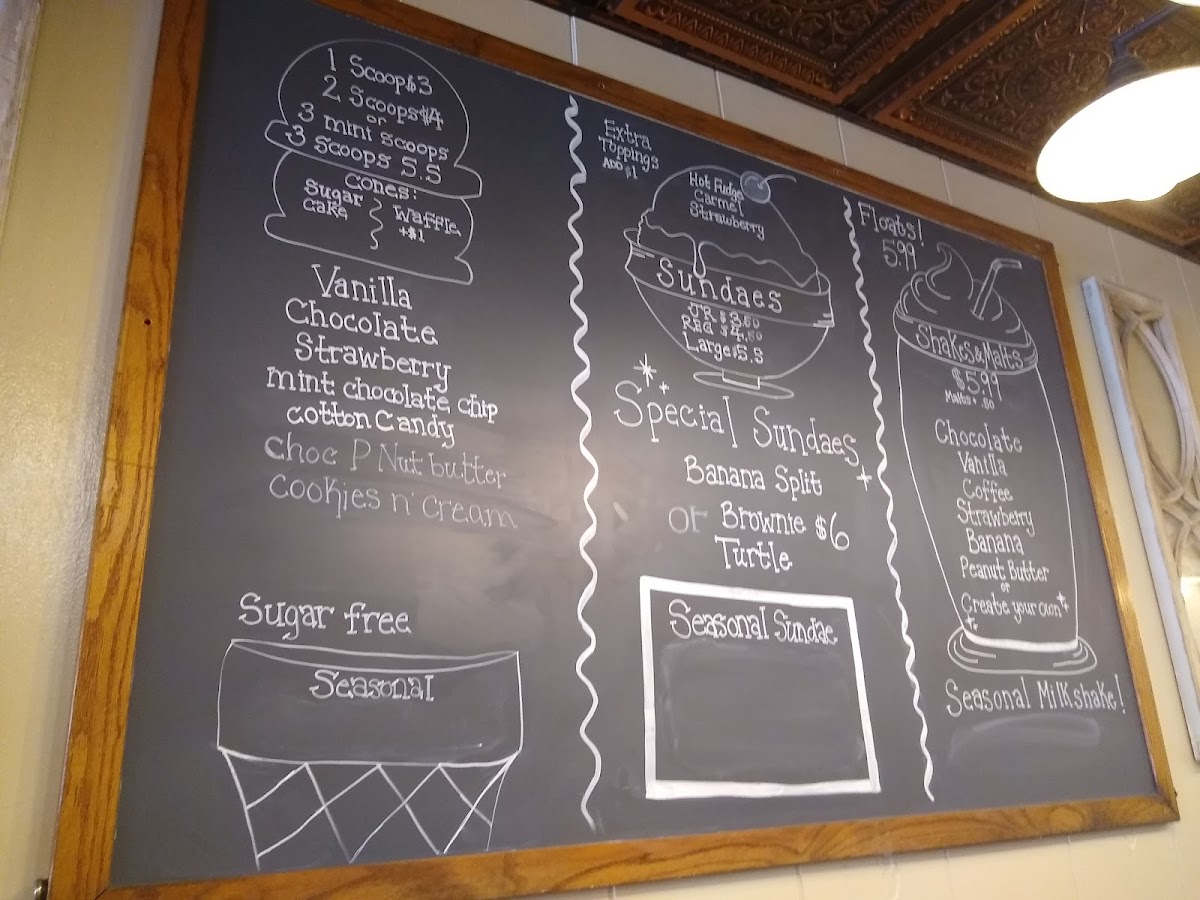 1 Scoop $3
2 Scoops $4
or
3 mini scoops
3 scoops 5.5
Cones:
Sugar
Cake
Waffle
+$1
Vanilla
Chocolate
Strawberry
mint chocolate chip
cotton Candy
Choc P Nut butter
Cookies n' Cream
Sugar free
Seasonal
Extra
Toppings
ADD $1
Hot Fudge
Carmel
Strawberry
Sundaes
JR $3.50
REG $4.50
Large $5.5
Special Sundaes
Banana Split
or Brownie $6
Turtle
Seasonal Sundae
Floats!
5.99
Shakes & Malts
$5.99
Malts + .50
Chocolate
Vanilla
Coffee
Strawberry
Banana
Peanut Butter
or
Create your own
Seasonal Milkshake!